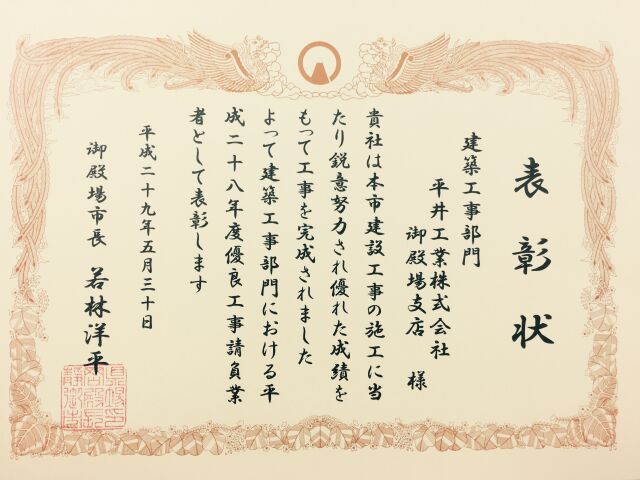 表彰状
建築工事部門
平井工業株式会社
御殿場支店 様
貴社は本市建設工事の施工に当
たり鋭意努力され優れた成績を
もって工事を完成されました
よって建築工事部門における平
成二十八年度優良工事請負業
者として表彰します
平成二十九年五月三十日
御殿場市長 若林洋平